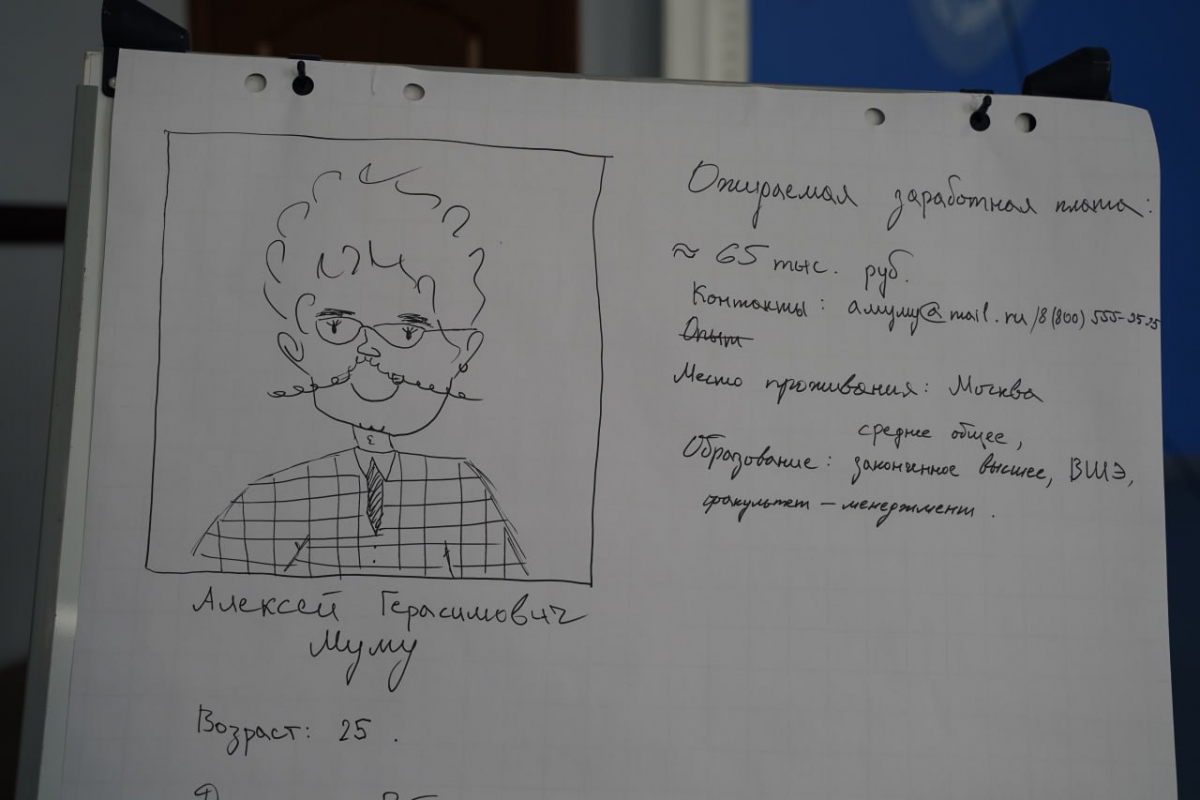 Алексей Герасимович
Муму
Возраст: 25 .
Ожираемая заработная плата:
≈ 65 тыс. руб.
Контакты: амуму@mail.ru/8(800) 555-35-35
Опыт
Место проживания: Москва
среднее общее,
Образование: законченное высшее, ВШЭ,
факультет – менеджмент .